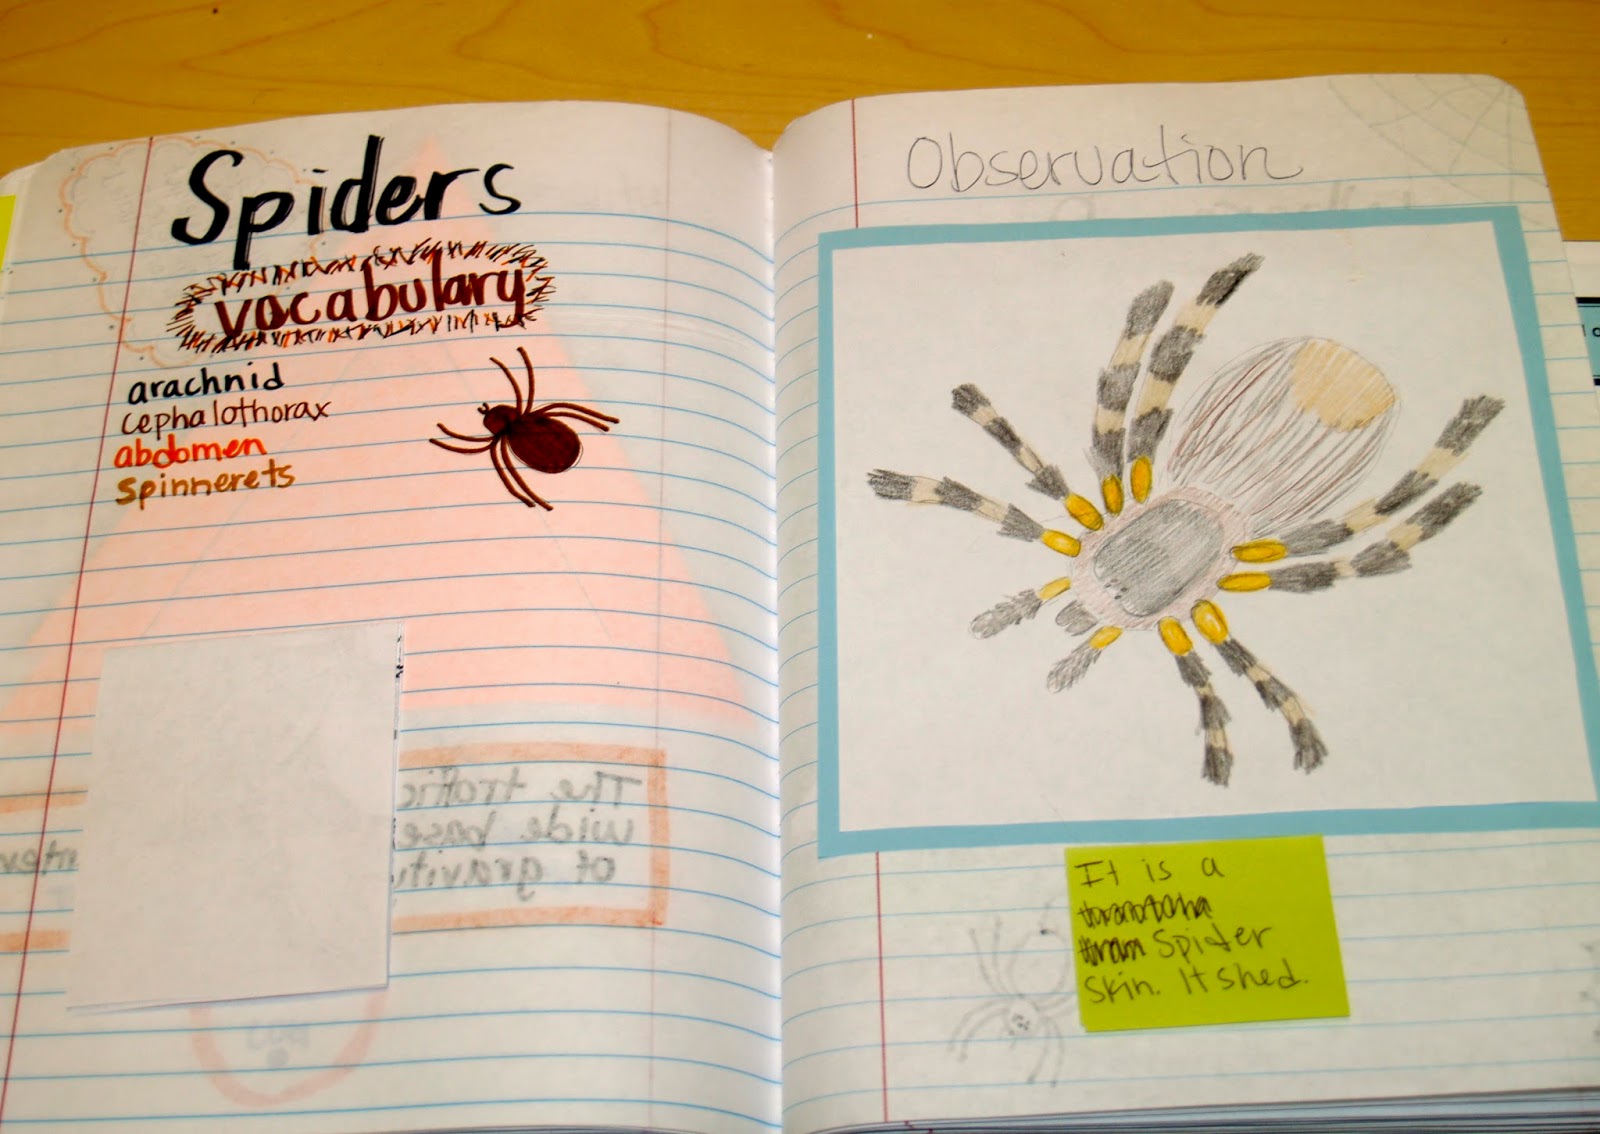 Spiders
vocabulary
arachnid
cephalothorax
abdomen
spinnerets
The trafic
wide base
of gravity
Observation
It is a
Spider
Skin. It shed.